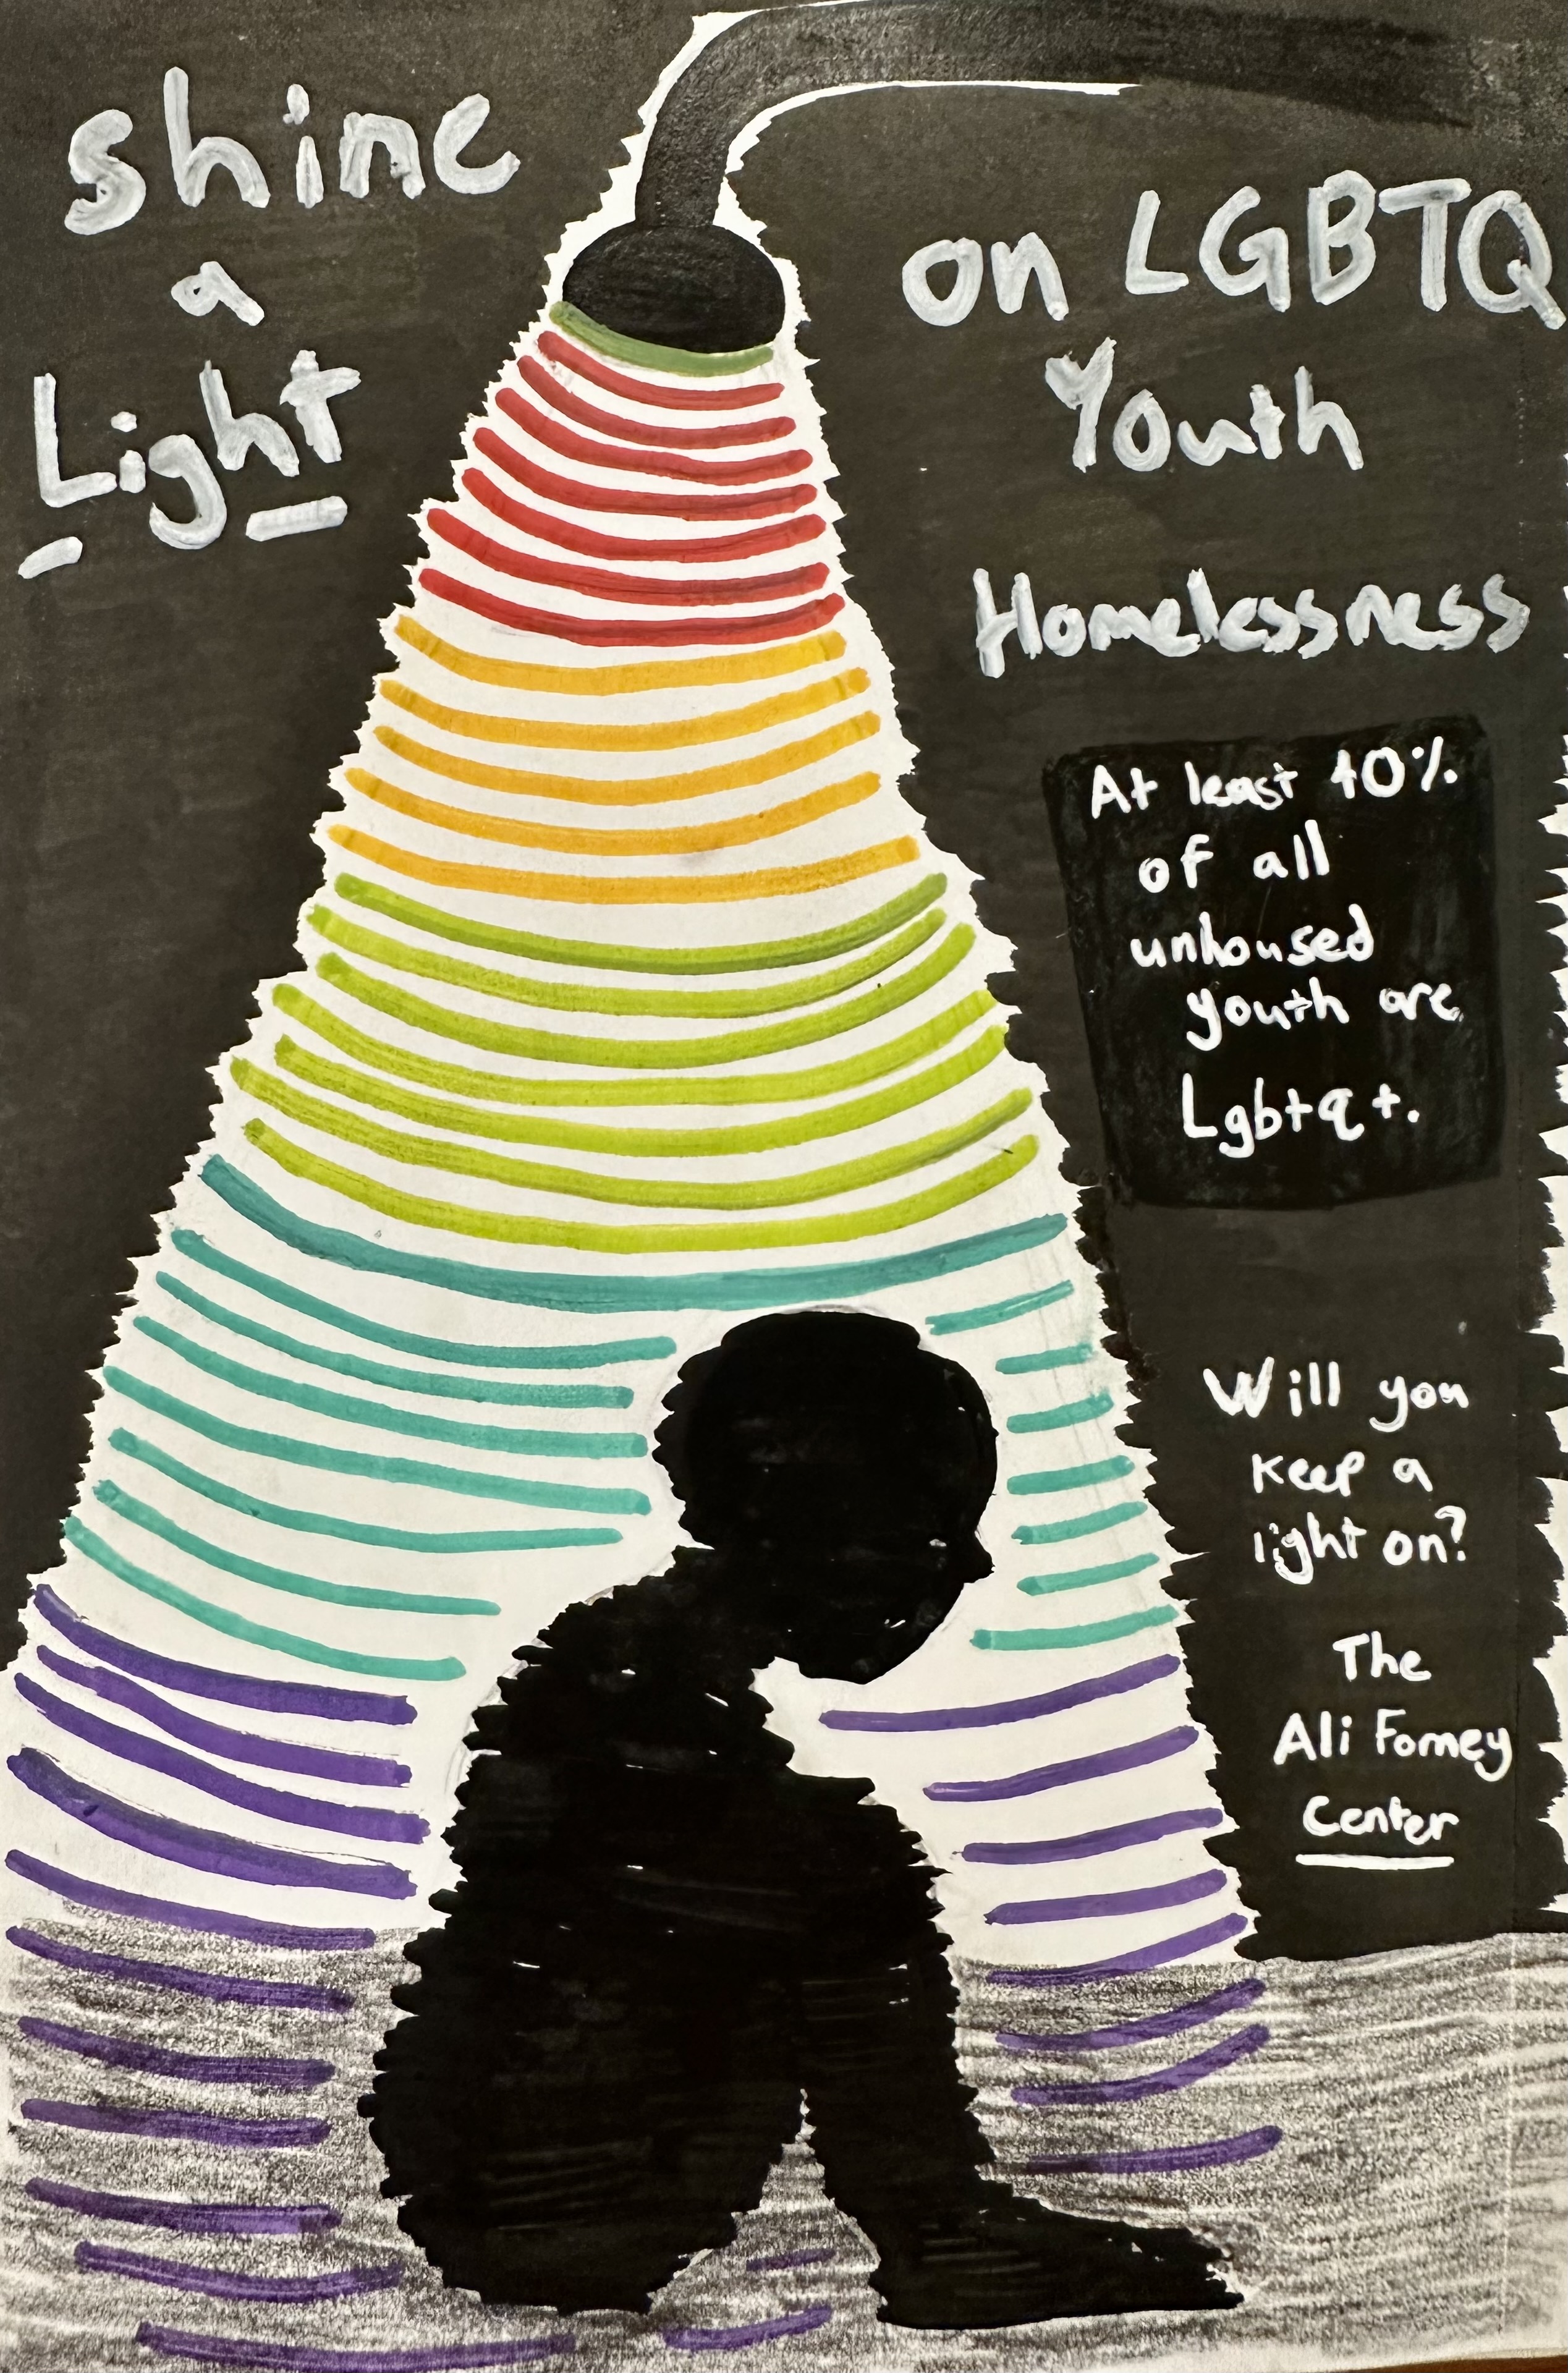 shine
a
Light
on LGBTQ
Youth
Homelessness
At least 40%
of all
unhoused
youth are
Lgbtq+.
Will you
keep a
light on?
The
Ali Forney
Center